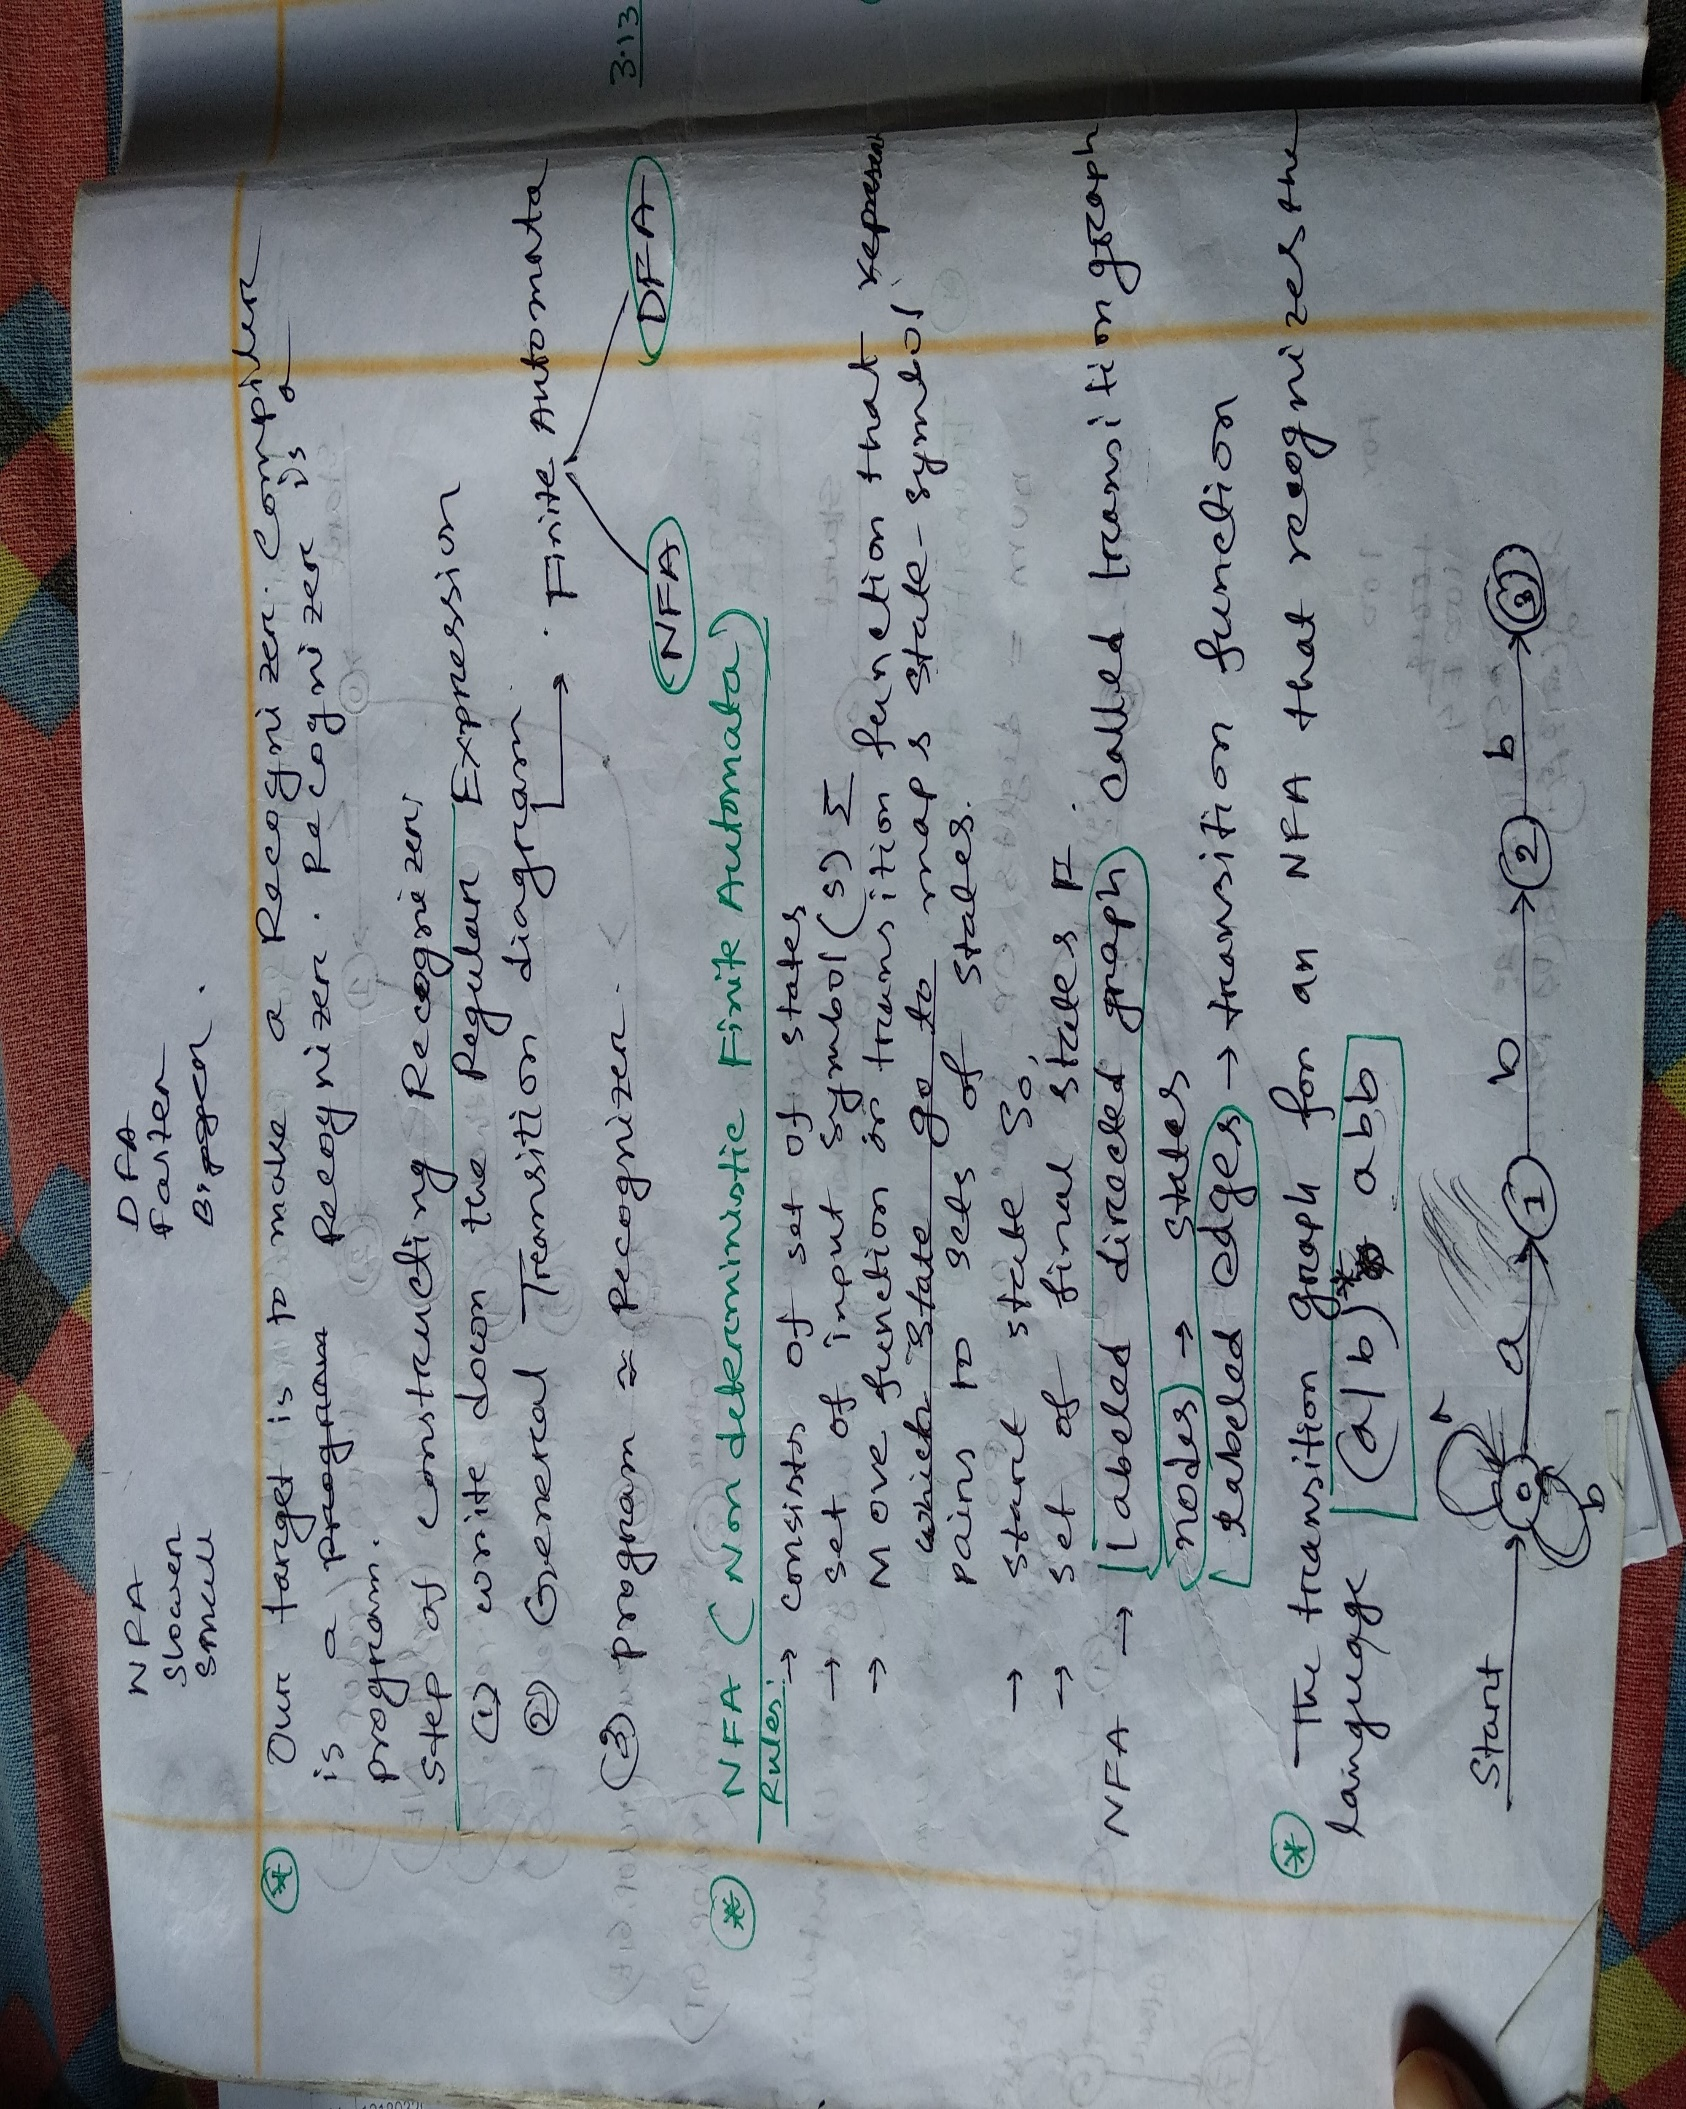 NFA
Slower
Small
DFA
Faster
Bigger.
* Our target is to make a Recognizer. Compiler
is a program Recognizer. Recognizer is a
program.
Step of constructing Recognizer:
(1) write down the Regular Expression
(2) General Transition diagram. → Finite Automata
NFA DFA
(3) program ≈ Recognizer.
* NFA (Non deterministic Finite Automata)
Rules: → consists of set of states
→ set of input symbol(s) Σ
→ Move function or transition function that represent
which state go to maps state-symbol
pairs to sets of states.
→ start state S0,
→ set of final states F
NFA → Labeled directed graph called transition graph
nodes → states
Labeled edges → transition function
* The transition graph for an NFA that recognizes the
language (a|b)* abb
Start 0 a 1 b 2 b 3
b
3.13